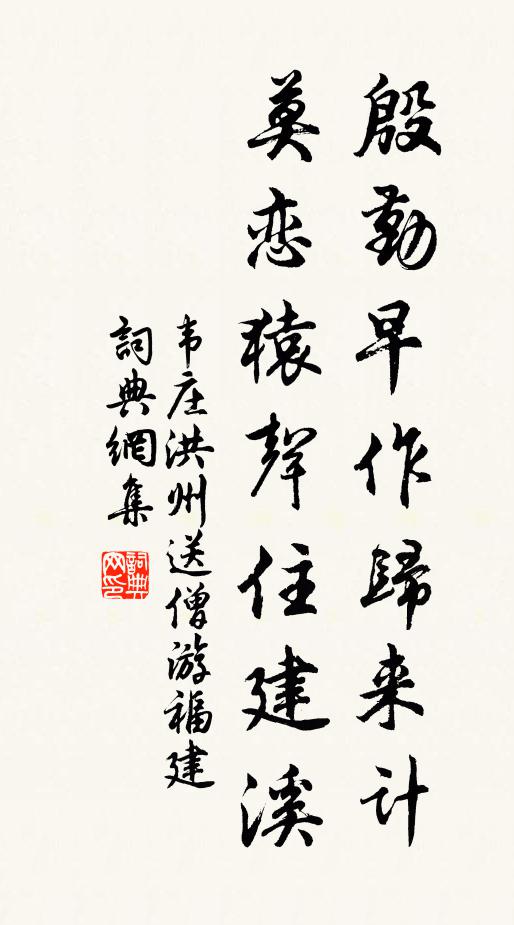 殷勤早作歸来计
莫恋猿聲住建溪
韦庄洪州送僧游福建
詞典網集
詞典
网印